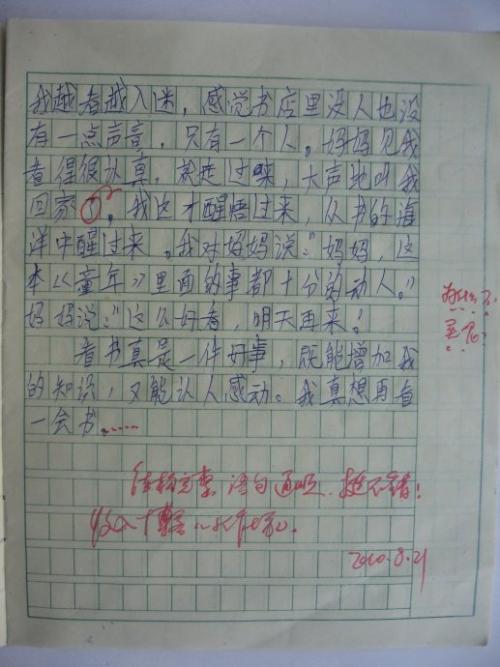 我越看越入迷，感觉书店里没人也没
有一点声音，只有一个人。妈妈见我
看得很认真，就走过来，大声地叫我
回家了。我这才醒悟过来，从书的海
洋中醒过来。我对妈妈说："妈妈，这
本《童年》里面的事都十分的动人。"
妈妈说："这么好看，明天再来！
看书真是一件好事，既能增加我
的知识，又能让人感动。我真想再看
一会书。……
语句通顺，挺不错！
2010.8.21